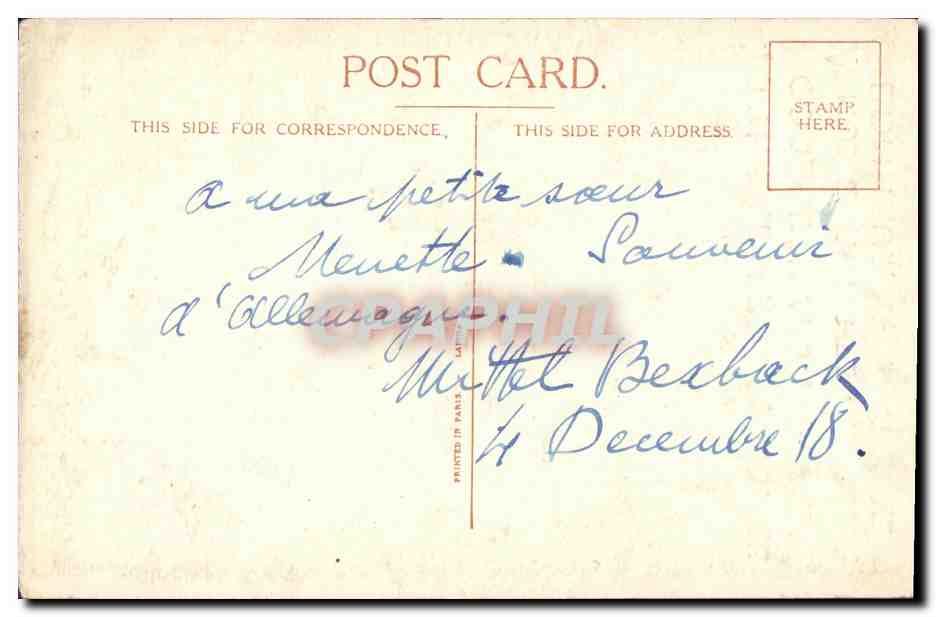 POST CARD.
THIS SIDE FOR CORRESPONDENCE.
THIS SIDE FOR ADDRESS.
STAMP
HERE.
a ma petite sœur
Menette. Souvenir
d'Allemagne.
Mittel Bexback
4 Decembre 18.
PRINTED IN PARIS.
CPAPHIL